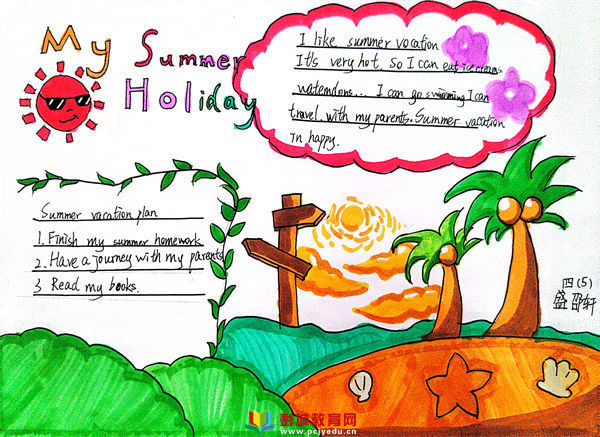 My Summer
Holiday
I like summer vocation
It's very hot. So I can eat ice cream
watemelons... I can go swimming I can
travel with my parents. Summer vacation
in happy.
Summer vacation plan
1. Finish my summer homework
2. Have a journey with my parents
3 Read my books.
四(5)
盛邵轩
教育网
www.pcjyedu.cn